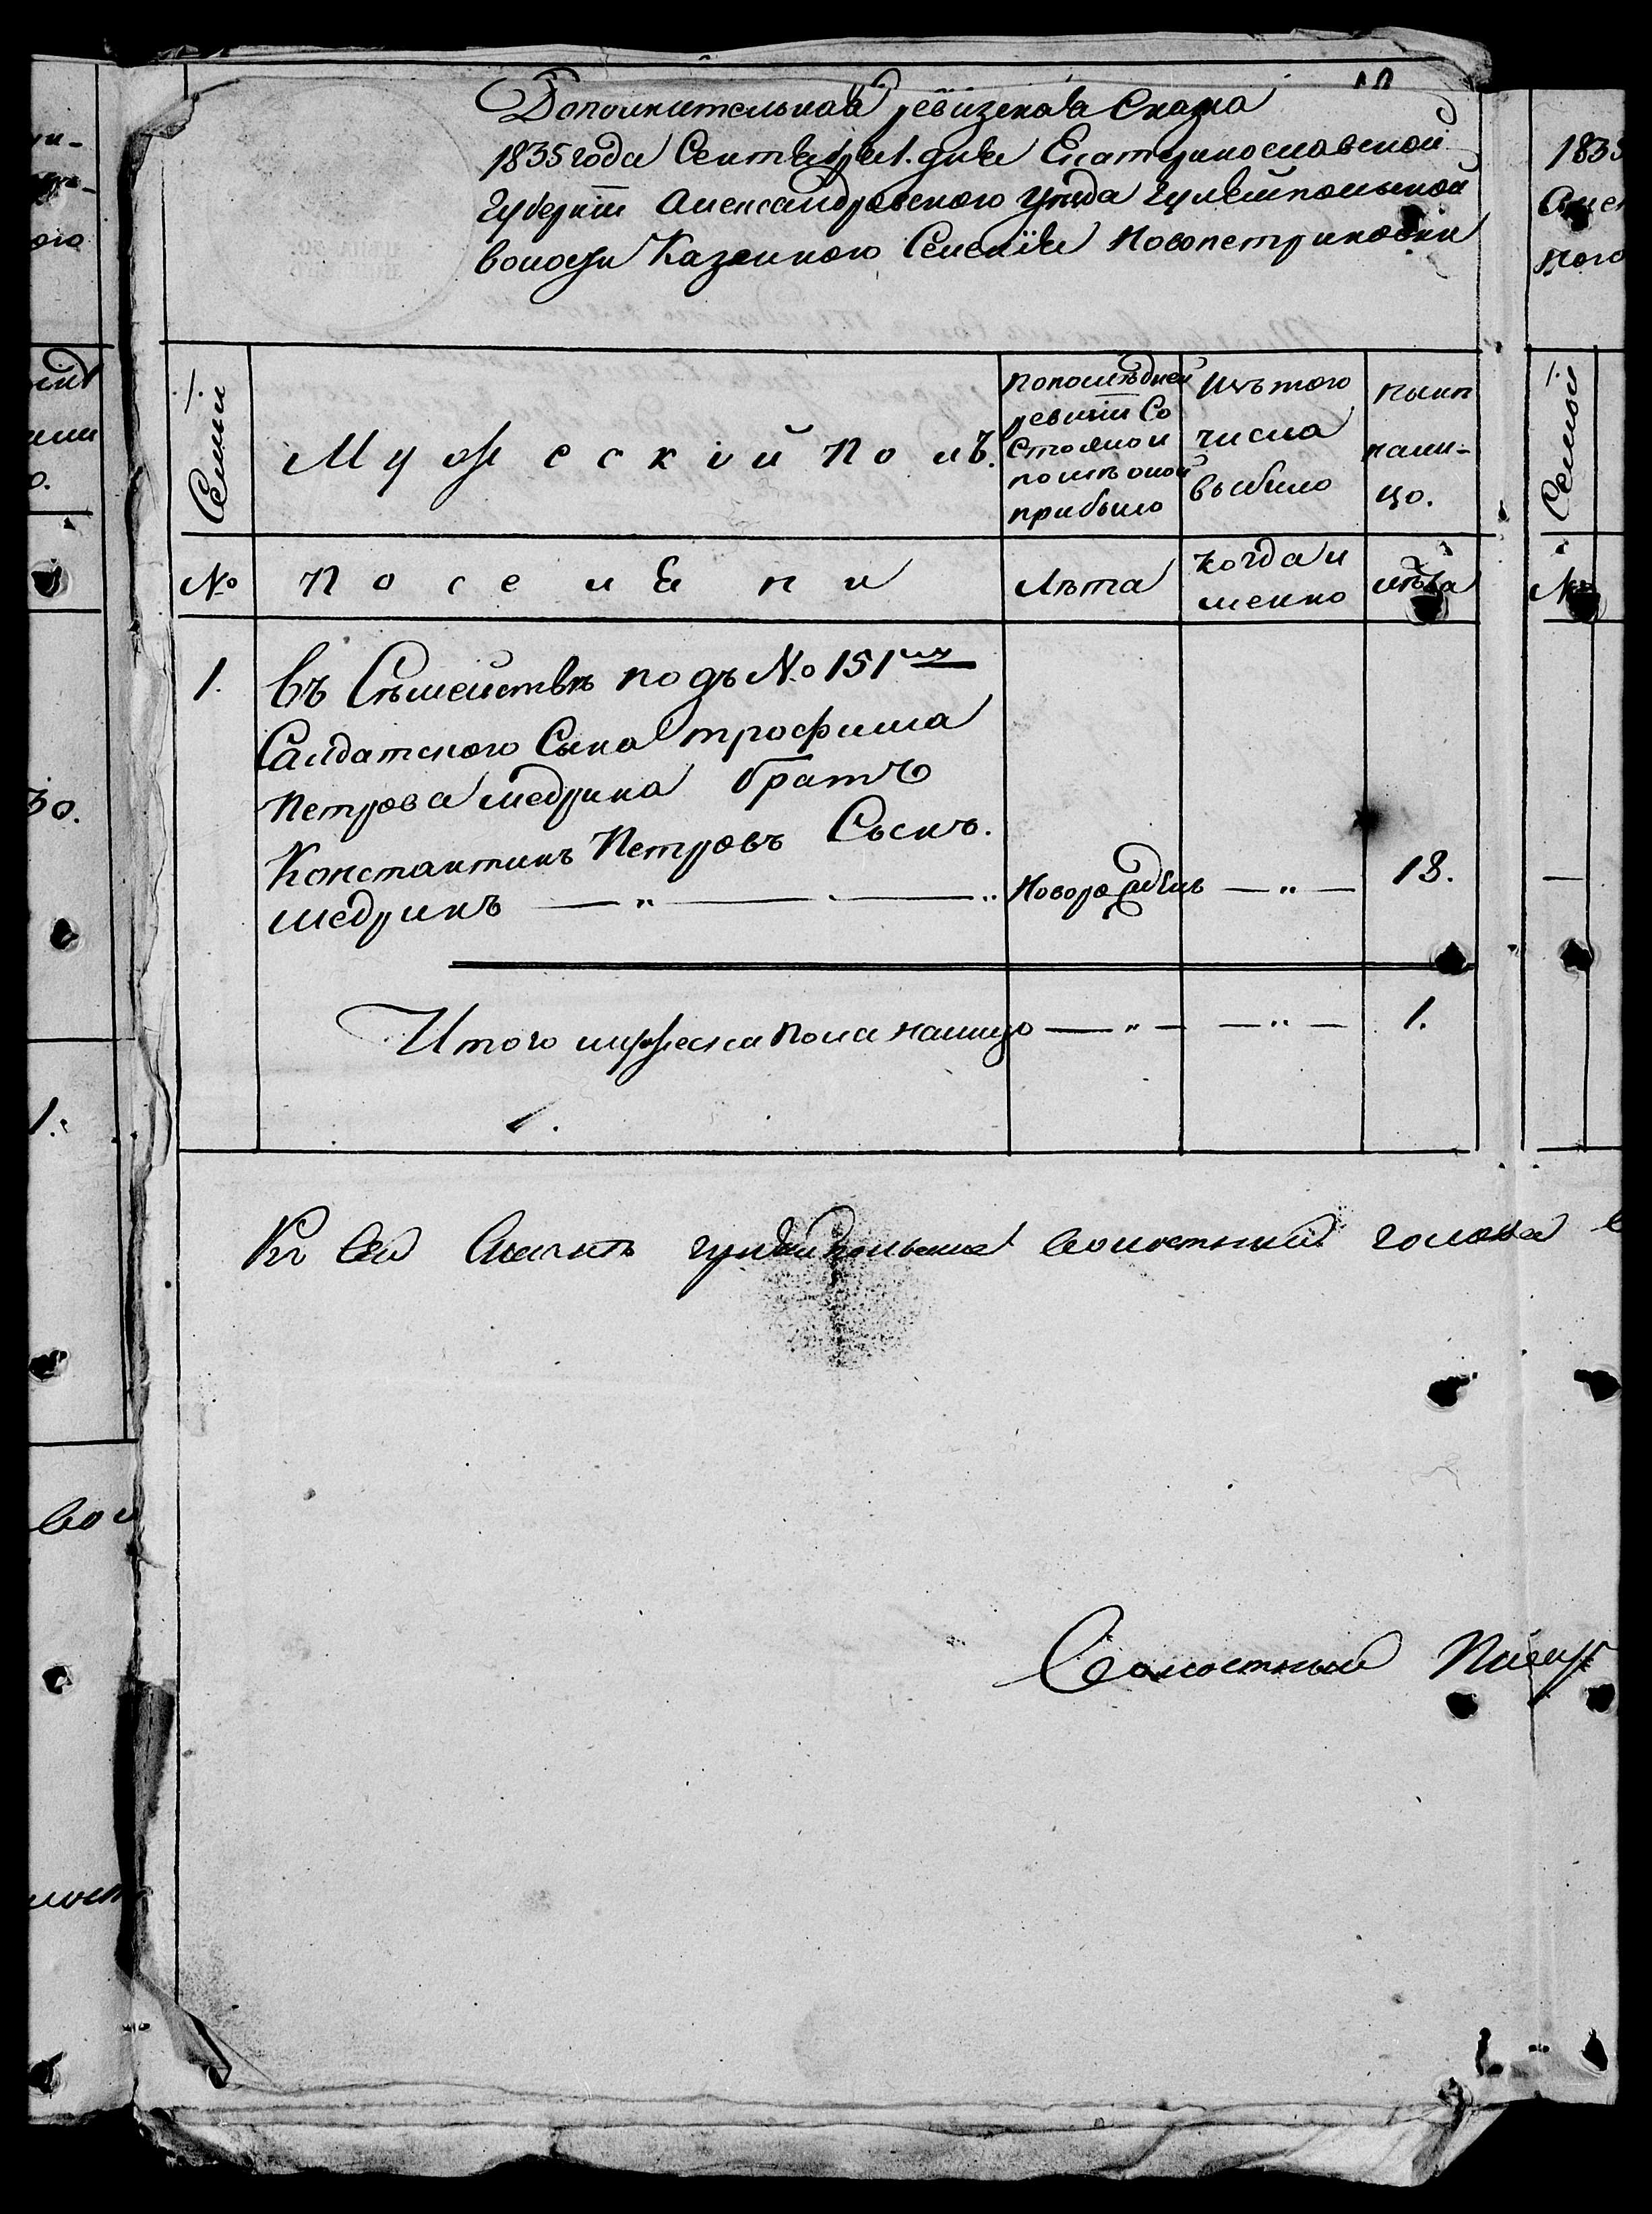 Дополнительная ревизская Сказка
1835 года Сентября 1. дня Екатеринославской
Губернiи Александровского уѣзда Гуляйпольской
волости Казенного Селенiя Новопетриковки
Семьи
Мужескiй полъ.
По послѣдней
ревизiи Со
стояло и
послѣ оной
прибыло
Изъ того
числа
выбыло
Нынѣ
нали-
цо.
№
Поселяни
Лѣта
Когда и
менно
лѣта
1.
Въ Сѣмействѣ подъ № 151мъ
Салдатского Сына трофима
Петрова Медрина братъ
Константинъ Петровъ Сынъ.
Медринъ — " — Новорожденъ — " — 18.
Итого мужеска пола налицо — " — — " — 1.
1.
Къ Сей Сказкѣ гуляйпольский волостний голова
Волостный Писарь
1835
Семьи
№